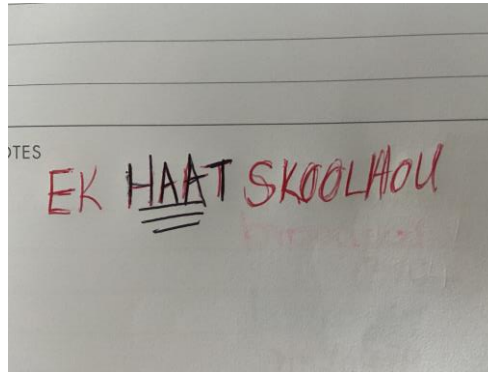 OTES
EK HAAT SKOOLHOU